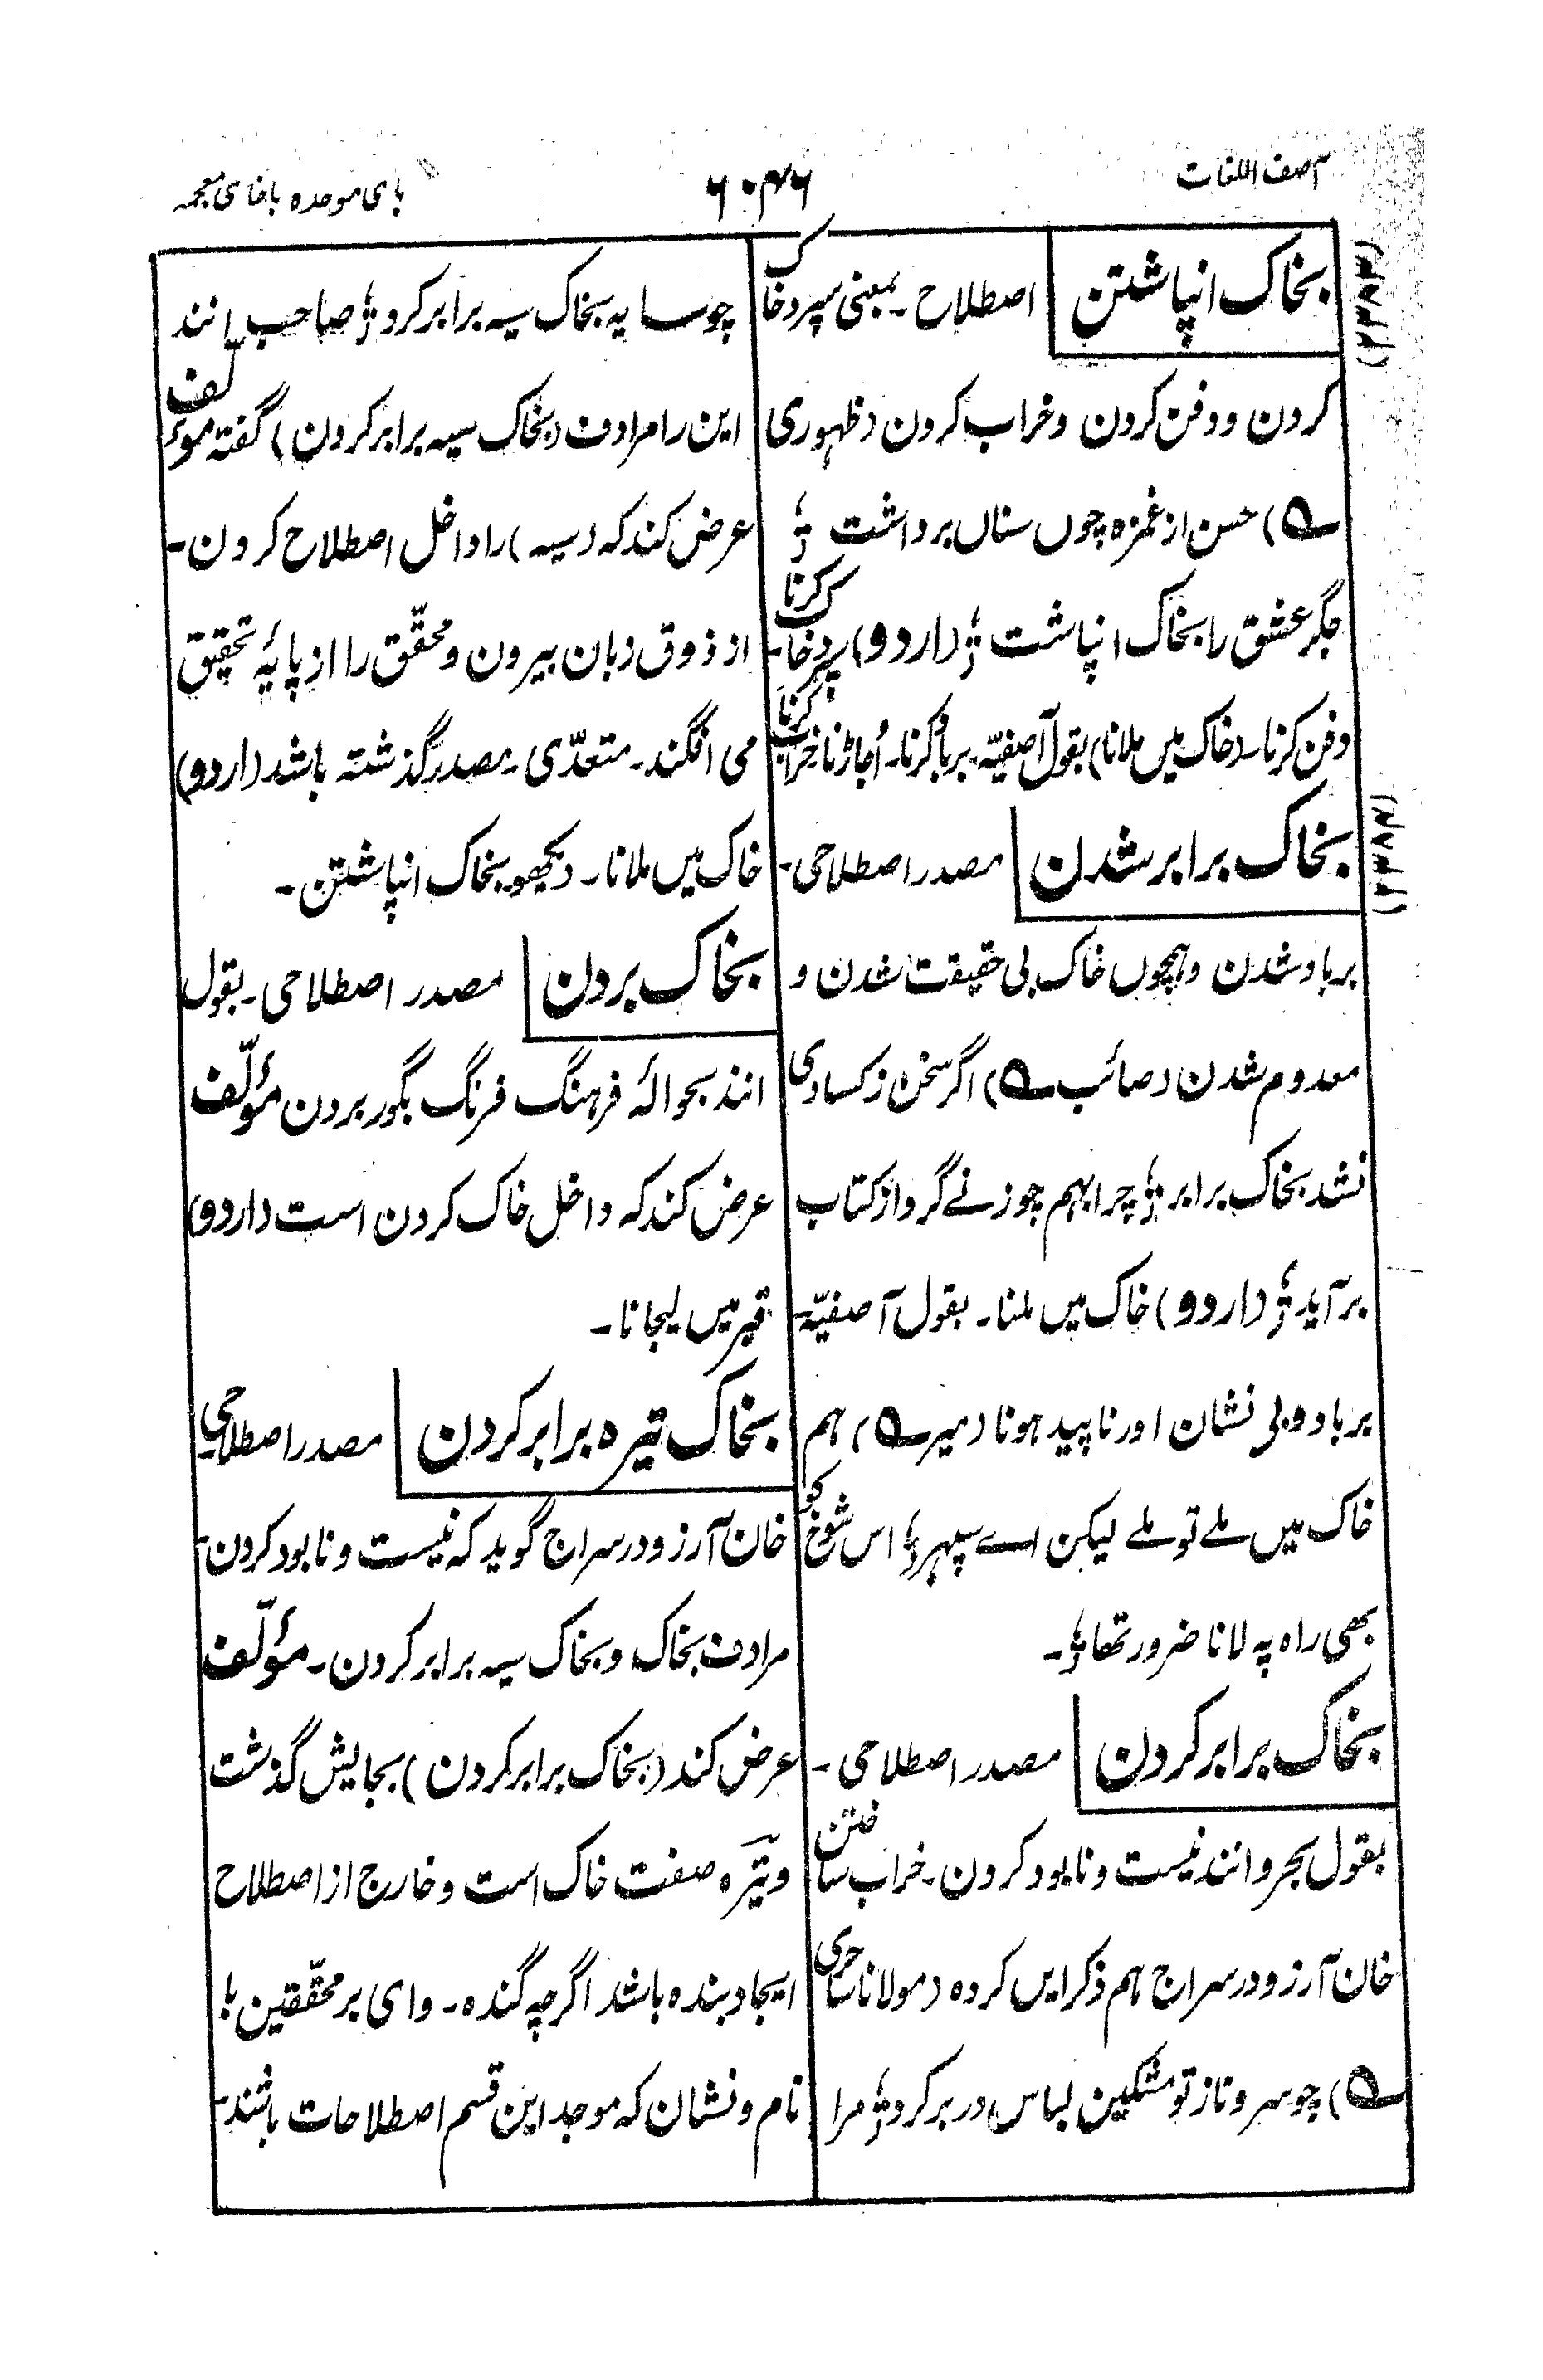 آصف اللغات
۶۰۴۶
بای موحدہ با خای معجمہ
بخاک انپاشتن | اصطلاح ۔ بمعنی سپرد خاک
کردن و دفن کردن و خراب کردن (ظہوری
ے) حسن از غمزہ چوں سناں برداشت ؛
جگر عشق را بخاک انپاشت ؛ (اردو) سپرد خاک کرنا ۔
دفن کرنا ۔ (خاک میں ملانا) بقول آصفیّہ ۔ برباد کرنا ۔ اُجاڑنا ۔ خراب کرنا
بخاک برابر شدن | مصدر اصطلاحی ۔
برباد شدن و ہمچوں خاک بی حقیقت شدن و
معدوم شدن (صائب ے) اگر سخن ز کسادی
نشد بخاک برابر ؛ چرا بہم چو زنے گرد از کتاب
برآید ؛ (اردو) خاک میں ملنا ۔ بقول آصفیّہ ۔
برباد و بی نشان اور ناپید ہونا (میر ے) ہم
خاک میں ملے تو ملے لیکن اے سپہر ؛ اس شوخ کو
بھی راہ پہ لانا ضرور تھا ؛ ۔
بخاک برابر کردن | مصدر اصطلاحی ۔
بقول بحر و انند نیست و نابود کردن ۔ خراب ساختن
خان آرزو در سراج ہم ذکر ایں کردہ (مولانا ساحری
ے) چو سرو ناز تو مشکین لباس در بر کرد ؛ مرا
چو سایہ بخاک سیہ برابر کرد ؛ صاحب انند
این را مرادف (بخاک سیہ برابر کردن) گفتہ مؤلّف
عرض کند کہ (سیہ) را داخل اصطلاح کردن ۔
از ذوق زبان بیرون و محقّق را از پایۂ تحقیق
می افگند ۔ متعدّی ۔ مصدر گذشتہ باشد (اردو)
خاک میں ملانا ۔ دیکھو بخاک انپاشتن ۔
بخاک بردن | مصدر اصطلاحی ۔ بقول
انند بحوالۂ فرہنگ فرنگ بگور بردن مؤلّف
عرض کند کہ داخل خاک کردن است (اردو)
قبر میں لیجانا ۔
بخاک تیرہ برابر کردن | مصدر اصطلاحی ۔
خان آرزو در سراج گوید کہ نیست و نابود کردن ۔
مرادف بخاک و بخاک سیہ برابر کردن ۔ مؤلّف
عرض کند (بخاک برابر کردن) بجایش گذشت
و تیرہ صفت خاک است و خارج از اصطلاح
ایجاد بندہ باشد اگرچہ گندہ ۔ وای بر محقّقین با
نام و نشان کہ موجد این قسم اصطلاحات باشند ۔
(۲۳۸۳)
(۲۳۸۴)